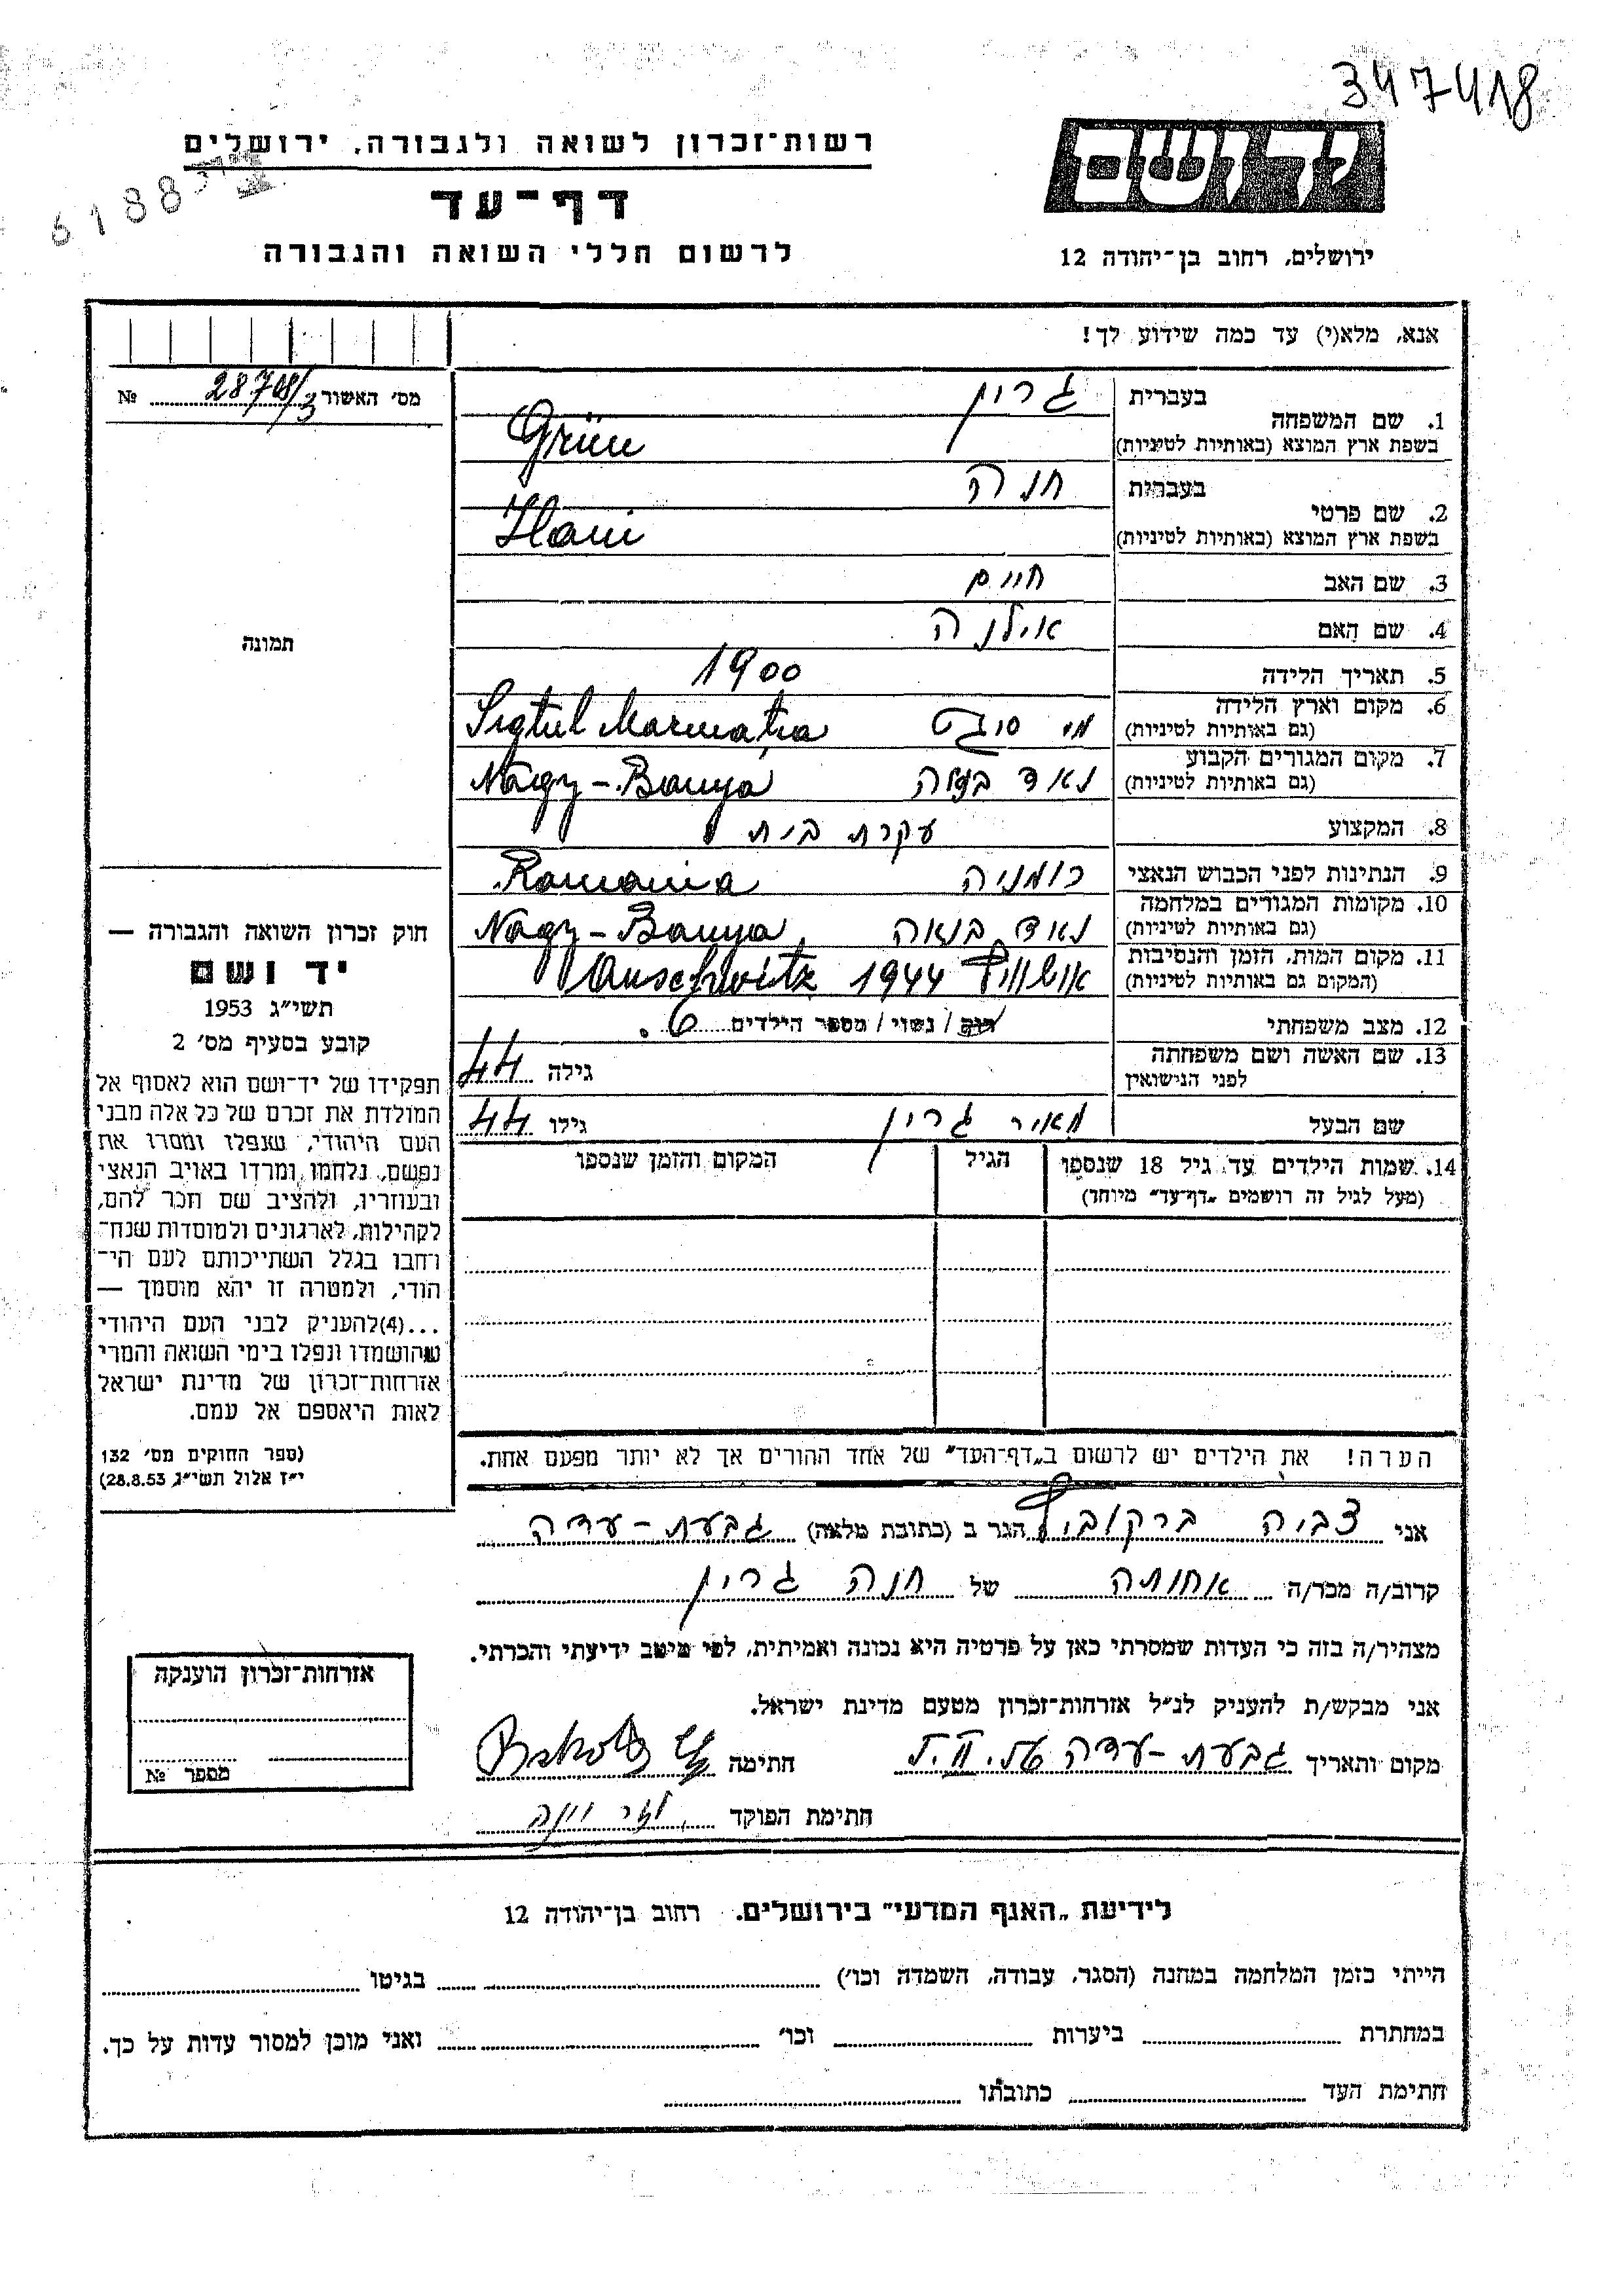 347418
רשות־זכרון לשואה ולגבורה, ירושלים
יד ושם
6188
דף־עד
לרשום חללי השואה והגבורה
ירושלים, רחוב בן־יהודה 12
אנא, מלא(י) עד כמה שידוע לך!
מס' האשור 28708/3 №
תמונה
1. שם המשפחה
בעברית גרין
בשפת ארץ המוצא (באותיות לטיניות) Grün
2. שם פרטי
בעברית חנה
בשפת ארץ המוצא (באותיות לטיניות) Hani
3. שם האב חיים
4. שם האם אילנה
5. תאריך הלידה 1900
6. מקום וארץ הלידה
(גם באותיות לטיניות) מ' סיגט Sigtul Marmatia
7. מקום המגורים הקבוע
(גם באותיות לטיניות) נאד בניה Nagy-Banya
8. המקצוע עקרת בית
9. הנתינות לפני הכבוש הנאצי רומניה Romania
10. מקומות המגורים במלחמה
(גם באותיות לטיניות) נאד בנאה Nagy-Banya
11. מקום המות, הזמן והנסיבות
(המקום גם באותיות לטיניות) אושוויץ 1944 Auschwitz
12. מצב משפחתי רוק / נשוי / מספר הילדים 6.
13. שם האשה ושם משפחתה
לפני הנישואין גילה 44
שם הבעל מאיר גרין גילו 44
14. שמות הילדים עד גיל 18 שנספו הגיל המקום והזמן שנספו
(מעל לגיל זה רושמים „דף־עד" מיוחד)
הערה! את הילדים יש לרשום ב„דף־העד" של אחד ההורים אך לא יותר מפעם אחת.
חוק זכרון השואה והגבורה —
יד ושם
תשי"ג 1953
קובע בסעיף מס' 2
תפקידו של יד־ושם הוא לאסוף אל
המולדת את זכרם של כל אלה מבני
העם היהודי, שנפלו ומסרו את
נפשם, נלחמו ומרדו באויב הנאצי
ובעוזריו, ולהציב שם וזכר להם,
לקהילות, לארגונים ולמוסדות שנח־
רחבו בגלל השתייכותם לעם הי־
הודי, ולמטרה זו יהא מוסמך —
...(4)להעניק לבני העם היהודי
שהושמדו ונפלו בימי השואה והמרי
אזרחות־זכרון של מדינת ישראל
לאות היאספם אל עמם.
(ספר החוקים מס' 132
י"ז אלול תשי"ג 28.8.53)
אני צביה ברקוביץ הגר ב (כתובת מלאה) גבעת-עדה
קרוב/ה מכר/ה אחותה של חנה גרין
מצהיר/ה בזה כי העדות שמסרתי כאן על פרטיה היא נכונה ואמיתית, לפי מיטב ידיעתי והכרתי.
אני מבקש/ת להעניק לנ"ל אזרחות־זכרון מטעם מדינת ישראל.
מקום ותאריך גבעת-עדה חתימה
חתימת הפוקד
אזרחות־זכרון הוענקה
מספר №
לידיעת „האגף המדעי" בירושלים. רחוב בן־יהודה 12
הייתי בזמן המלחמה במחנה (הסגר, עבודה, השמדה וכו') בגיטו
במחתרת ביערות וכו' ואני מוכן למסור עדות על כך.
חתימת העד כתובתו